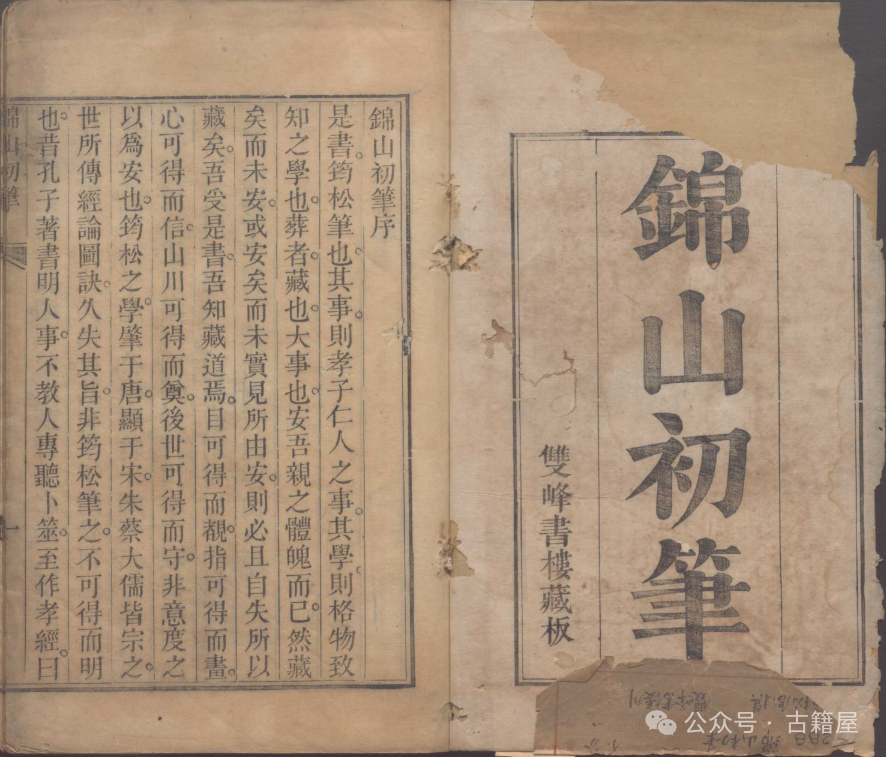 錦山初筆
雙峰書樓藏板
錦山初筆序
是書。筠松筆也。其事。則孝子仁人之事。其學。則格物致
知之學也。葬者。藏也。大事也。安吾親之體魄而已。然藏
矣而未安。或安矣而未實見所由安。則必且自失所以
藏矣。吾受是書。吾知藏道焉。目可得而覩。指可得而畫。
心可得而信。山川可得而奠。後世可得而守。非意度之
以爲安也。筠松之學肇于唐。顯于宋。朱蔡大儒皆宗之。
世所傳經論圖訣。久失其旨。非筠松筆之。不可得而明
也。昔孔子著書明人事。不教人專聽卜筮。至作孝經。曰
錦山初筆
一
公众号 · 古籍屋